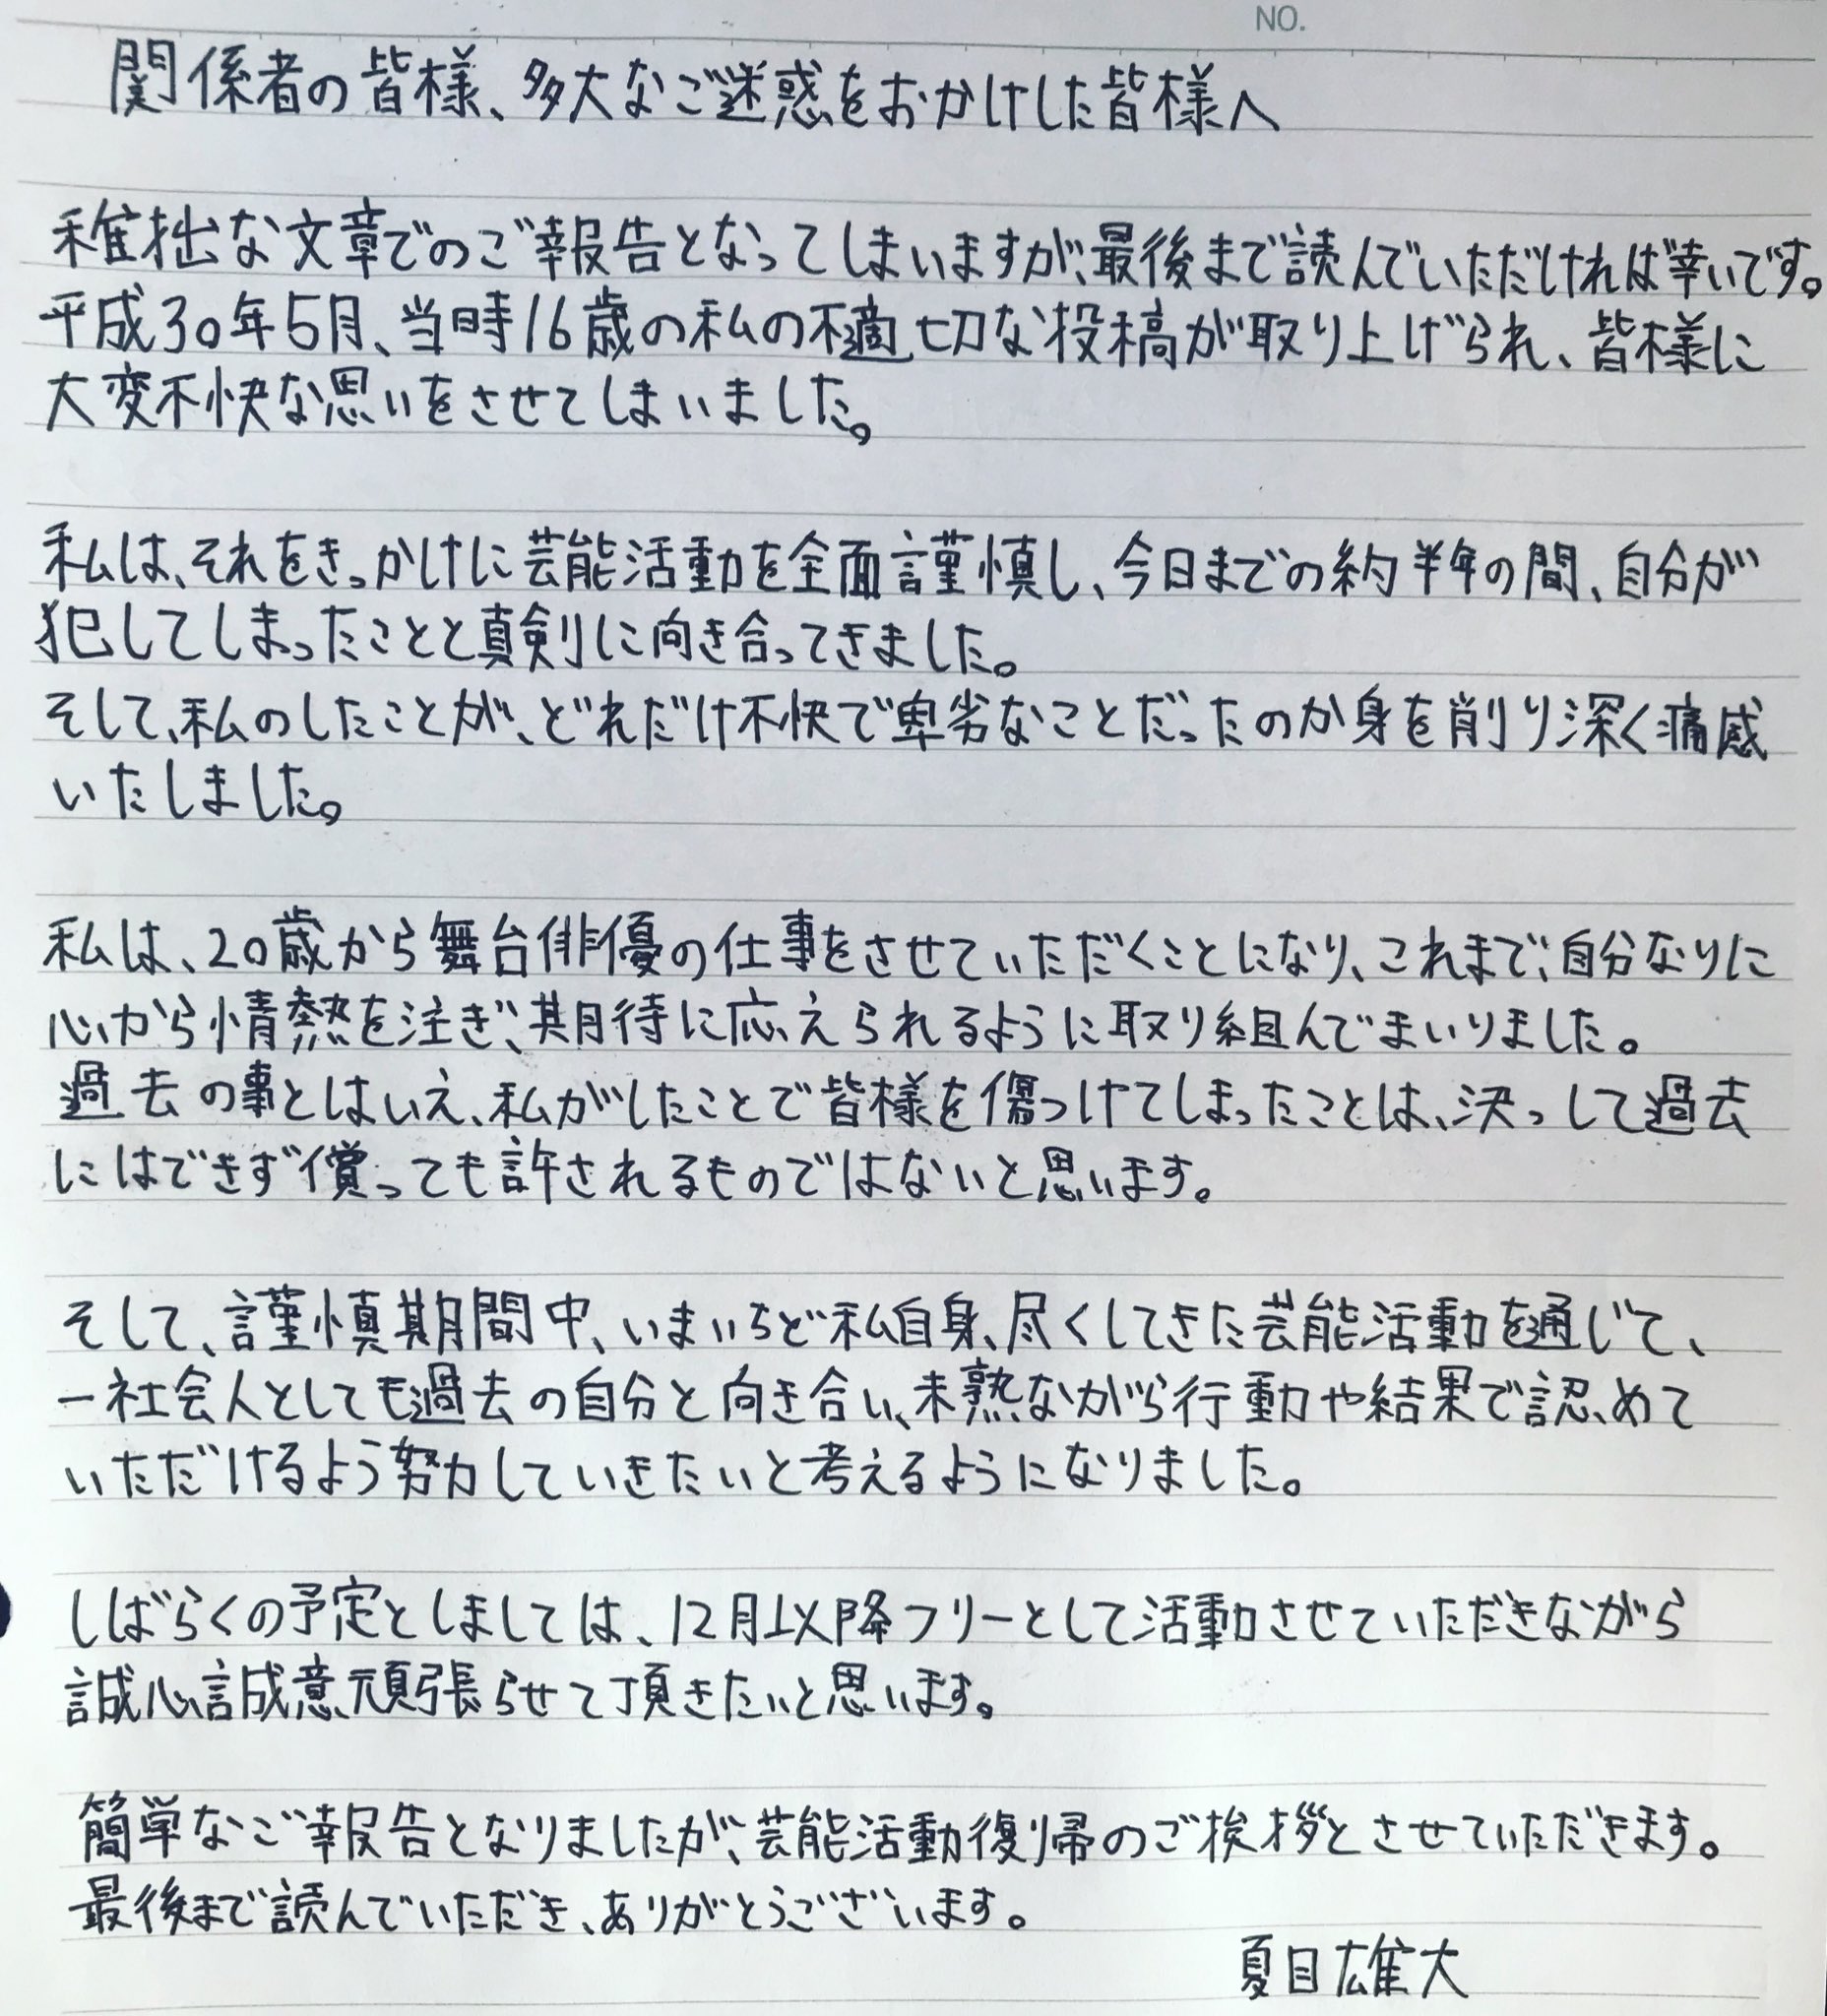 NO.
関係者の皆様、多大なご迷惑をおかけした皆様へ
稚拙な文章でのご報告となってしまいますが、最後まで読んでいただければ幸いです。
平成30年5月、当時16歳の私の不適切な投稿が取り上げられ、皆様に
大変不快な思いをさせてしまいました。
私は、それをきっかけに芸能活動を全面謹慎し、今日までの約半年の間、自分が
犯してしまったことと真剣に向き合ってきました。
そして、私のしたことが、どれだけ不快で卑劣なことだったのか身を削り深く痛感
いたしました。
私は、20歳から舞台俳優の仕事をさせていただくことになり、これまで、自分なりに
心から情熱を注ぎ、期待に応えられるように取り組んでまいりました。
過去の事とはいえ、私がしたことで皆様を傷つけてしまったことは、決っして過去
にはできず償っても許されるものではないと思います。
そして、謹慎期間中、いまいちど私自身、尽くしてきた芸能活動を通じて、
一社会人としても過去の自分と向き合い、未熟ながら行動や結果で認めて
いただけるよう努力していきたいと考えるようになりました。
しばらくの予定としましては、12月以降フリーとして活動させていただきながら
誠心誠意頑張らせて頂きたいと思います。
簡単なご報告となりましたが、芸能活動復帰のご挨拶とさせていただきます。
最後まで読んでいただき、ありがとうございます。
夏目雄大